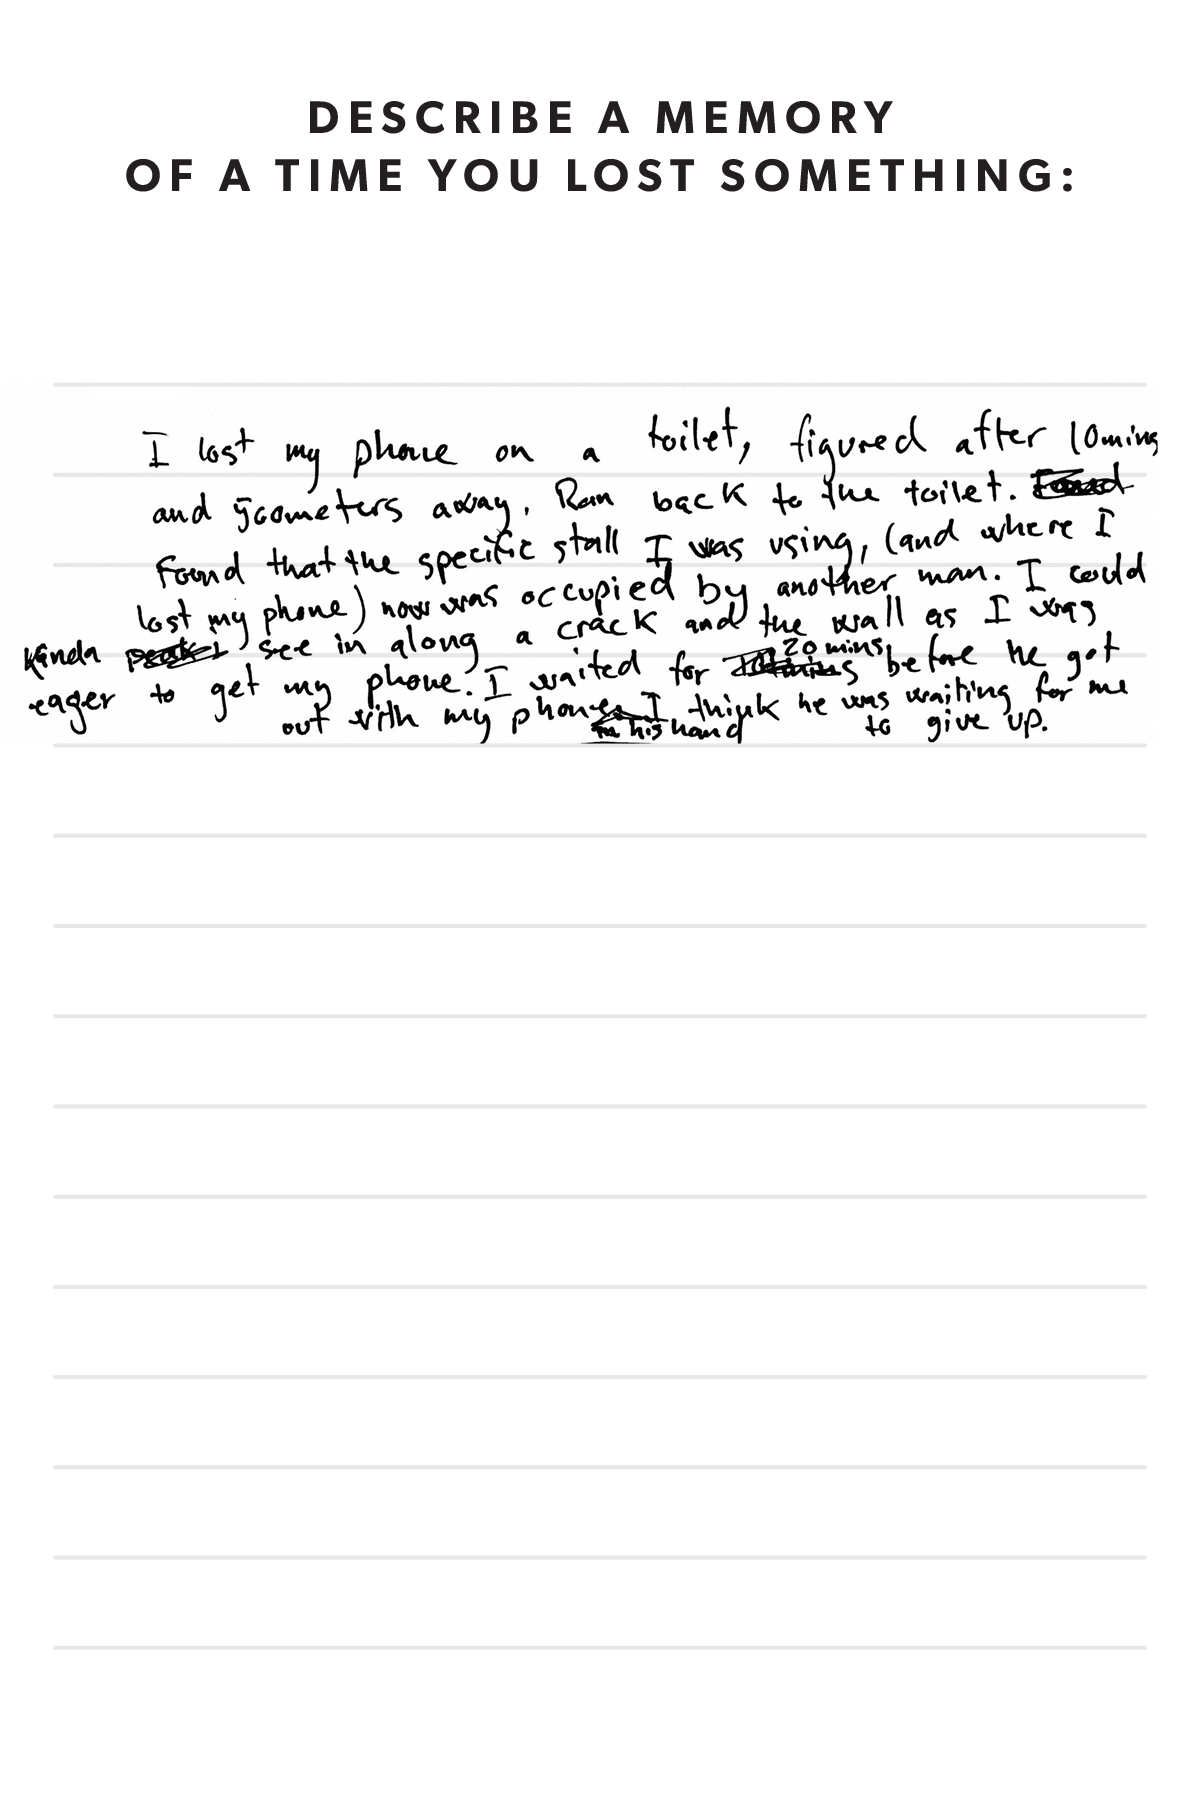 DESCRIBE A MEMORY
OF A TIME YOU LOST SOMETHING:
I lost my phone on a toilet, figured after 10mins
and 500meters away. Ran back to the toilet.
Found that the specific stall I was using, (and where I
lost my phone) now was occupied by another man. I could
kinda see in along a crack and the wall as I was
eager to get my phone. I waited for 20 mins before he got
out with my phone in his hand I think he was waiting for me
to give up.